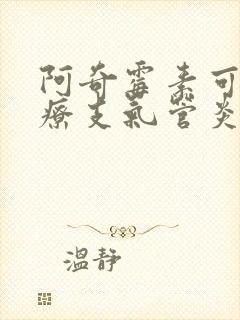 阿奇霉素可
療支氣管炎
溫静